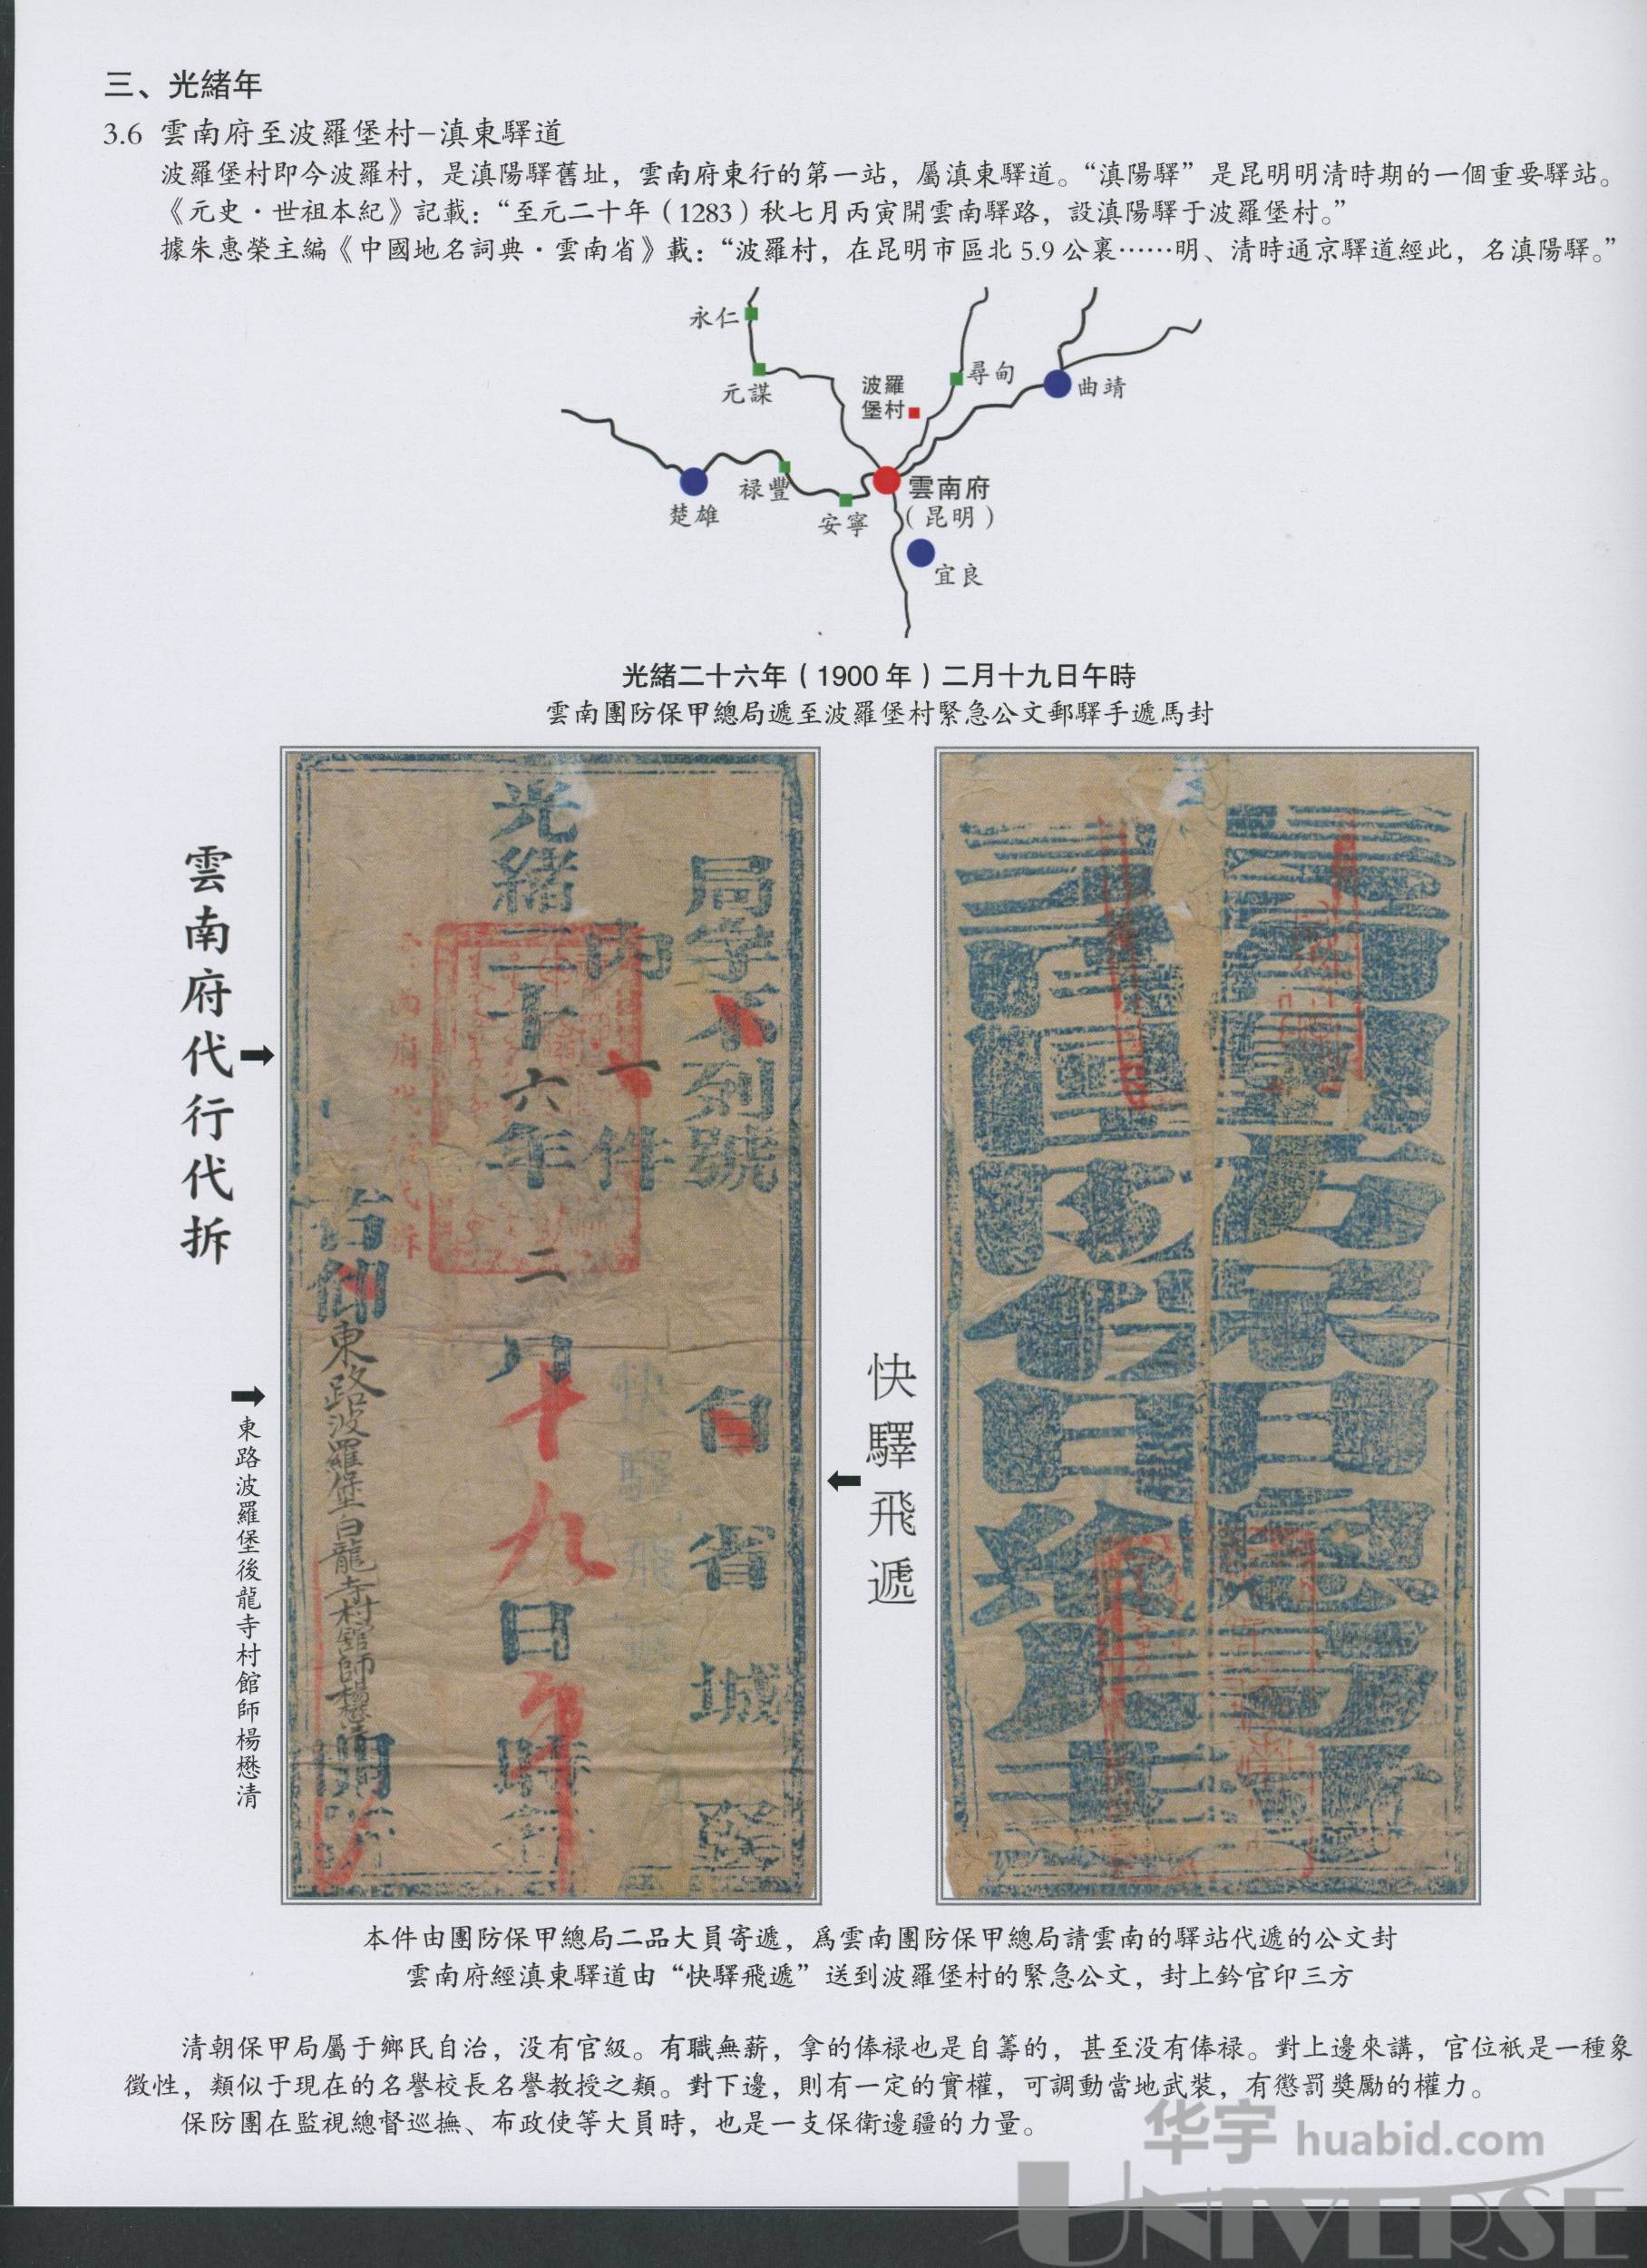 三、光緒年
3.6 雲南府至波羅堡村–滇東驛道
波羅堡村即今波羅村，是滇陽驛舊址，雲南府東行的第一站，屬滇東驛道。“滇陽驛”是昆明明清時期的一個重要驛站。
《元史·世祖本紀》記載：“至元二十年（1283）秋七月丙寅開雲南驛路，設滇陽驛于波羅堡村。”
據朱惠榮主編《中國地名詞典·雲南省》載：“波羅村，在昆明市區北 5.9 公裏……明、清時通京驛道經此，名滇陽驛。”
永仁
元謀
波羅
堡村
尋甸
曲靖
楚雄
禄豐
安寧
雲南府
（昆明）
宜良
光緒二十六年（1900 年）二月十九日午時
雲南團防保甲總局遞至波羅堡村緊急公文郵驛手遞馬封
雲南府代行代拆
東路波羅堡後龍寺村館師楊懋清
局字不列號
自省城
内一件
快驛飛遞
光緒二十六年二月十九日午時
右仰東路波羅堡白龍寺村館師楊懋清
快驛飛遞
本件由團防保甲總局二品大員寄遞，爲雲南團防保甲總局請雲南的驛站代遞的公文封
雲南府經滇東驛道由“快驛飛遞”送到波羅堡村的緊急公文，封上鈐官印三方
清朝保甲局屬于鄉民自治，没有官級。有職無薪，拿的俸禄也是自籌的，甚至没有俸禄。對上邊來講，官位衹是一種象
徵性，類似于現在的名譽校長名譽教授之類。對下邊，則有一定的實權，可調動當地武裝，有懲罰獎勵的權力。
保防團在監視總督巡撫、布政使等大員時，也是一支保衛邊疆的力量。
华宇 huabid.com
UNIVERSE